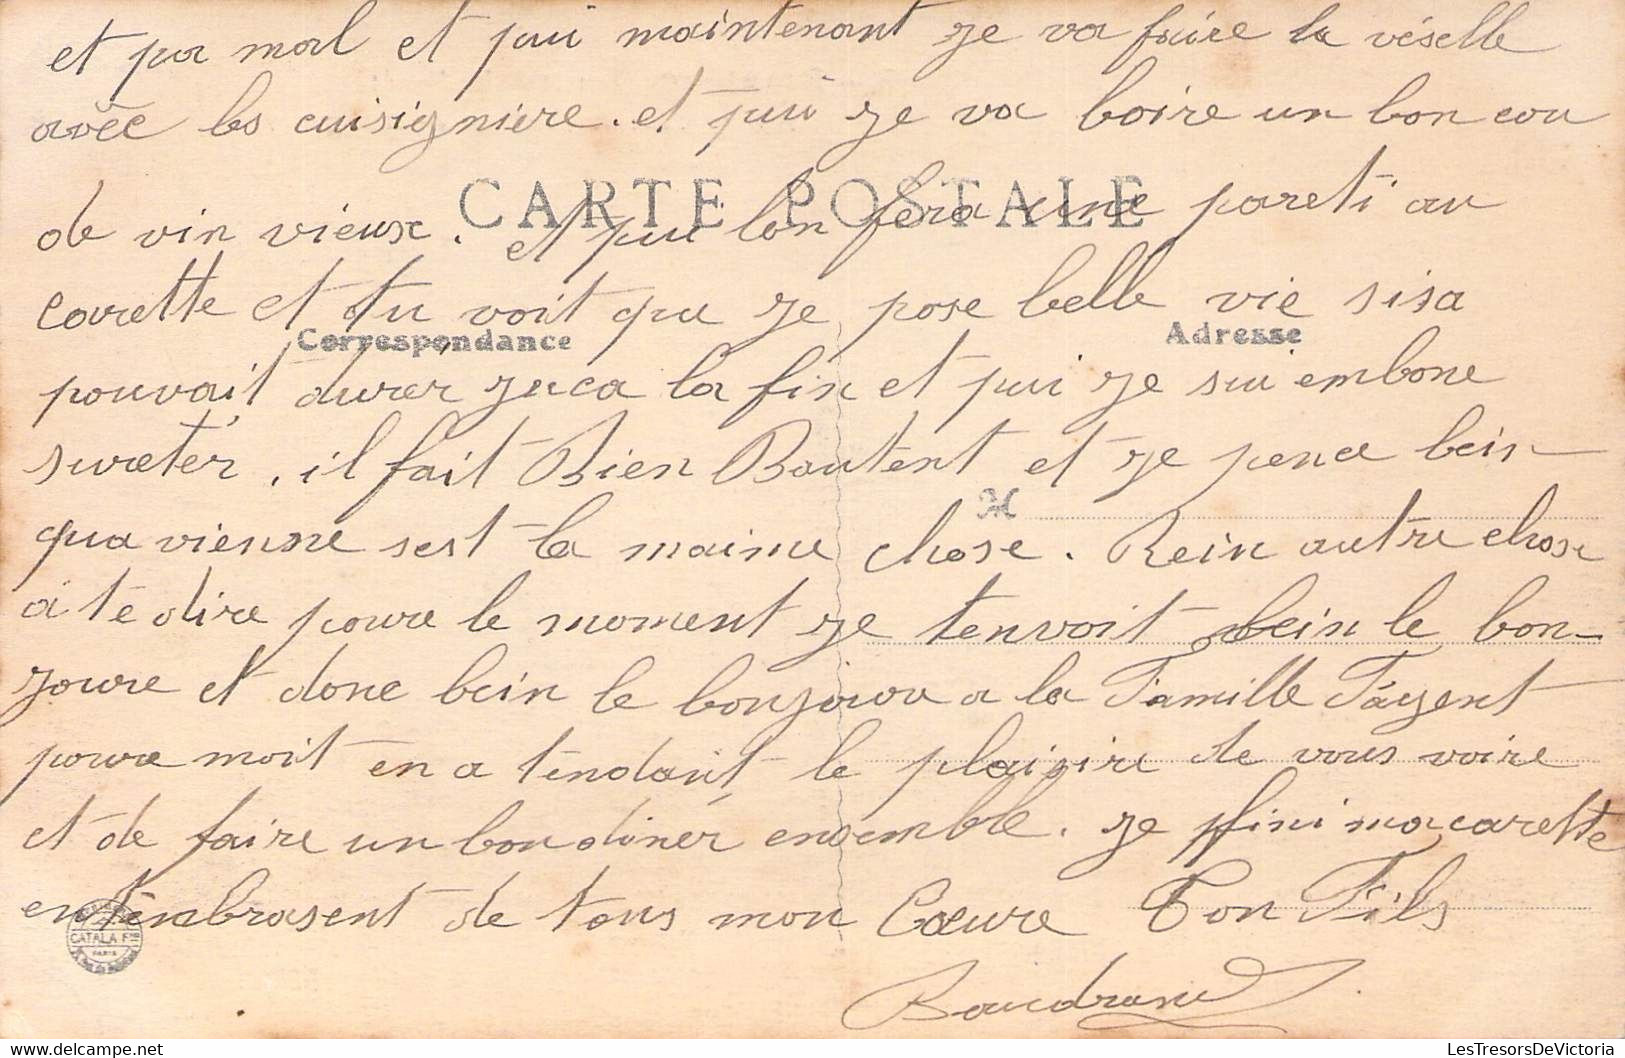 et pa mal et pui maintenant je va faire la véselle
avéc les cuisigniere. et pui je va boire un bon cou
CARTE POSTALE
de vin vieux. et pui lon fera une pareti au
carette et tu voit que je pose belle vie sisa
Correspondance
Adresse
pouvait durer juca la fin et pui je sui embone
sureter. il fait Bien Bautent et je pence bein
M
qua vienne sest la maime chose. Rein autre chose
a te dire poure le moment je tenvoit bein le bon-
joure et donc bein le bonjoure a la Famille
poure moit en a tendant le plaisire de vous voire
et de faire un bon diner ensemble. je fini ma carette
en tembrasent de tous mon Cœure Ton Fils
CATALA Fres
PARIS
LesTresorsDeVictoria